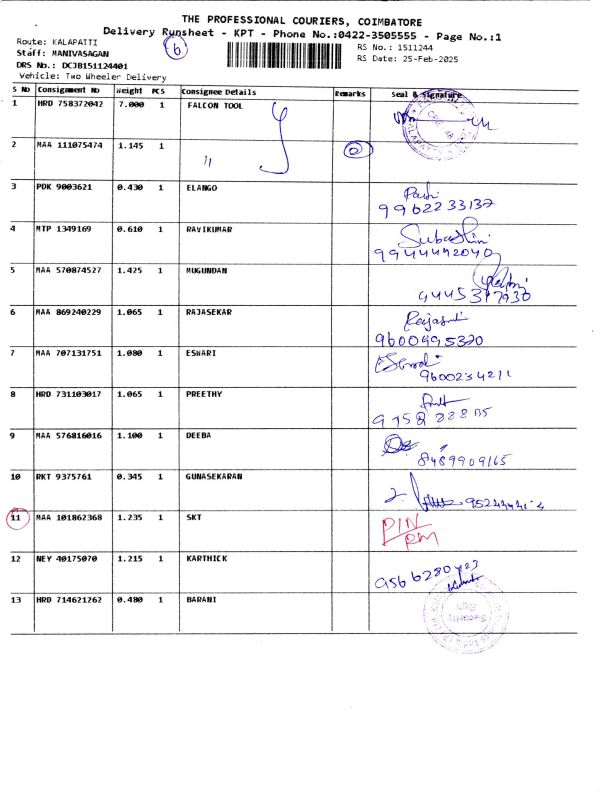 THE PROFESSIONAL COURIERS, COIMBATORE
Delivery Runsheet - KPT - Phone No.:0422-3505555 - Page No.:1
Route: KALAPATTI
Staff: MANIVASAGAN
DRS No.: DCJB151124401
Vehicle: Two Wheeler Delivery
6
RS No.: 1511244
RS Date: 25-Feb-2025
S NO Consignment NO Weight PCS Consignee Details Remarks Seal & Signature
1 HRD 758372042 7.000 1 FALCON TOOL
2 MAA 111075474 1.145 1 "
3 PDK 9003621 0.430 1 ELANGO 9962233132
4 MTP 1349169 0.610 1 RAVIKUMAR Subashini 9944492040
5 MAA 570874527 1.425 1 MUGUNDAN 9445317930
6 MAA 869240229 1.065 1 RAJASEKAR 9600995320
7 MAA 707131751 1.080 1 ESWARI 9600234211
8 HRD 731103017 1.065 1 PREETHY
9 MAA 576816016 1.100 1 DEEBA 8489909165
10 RKT 9375761 0.345 1 GUNASEKARAN
11 MAA 101862368 1.235 1 SKT PIN/RM
12 NEY 40175070 1.215 1 KARTHICK
13 HRD 714621262 0.480 1 BARANI